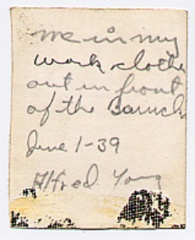 me in my
work clothe
out in front
of the
June 1-39
Alfred Young